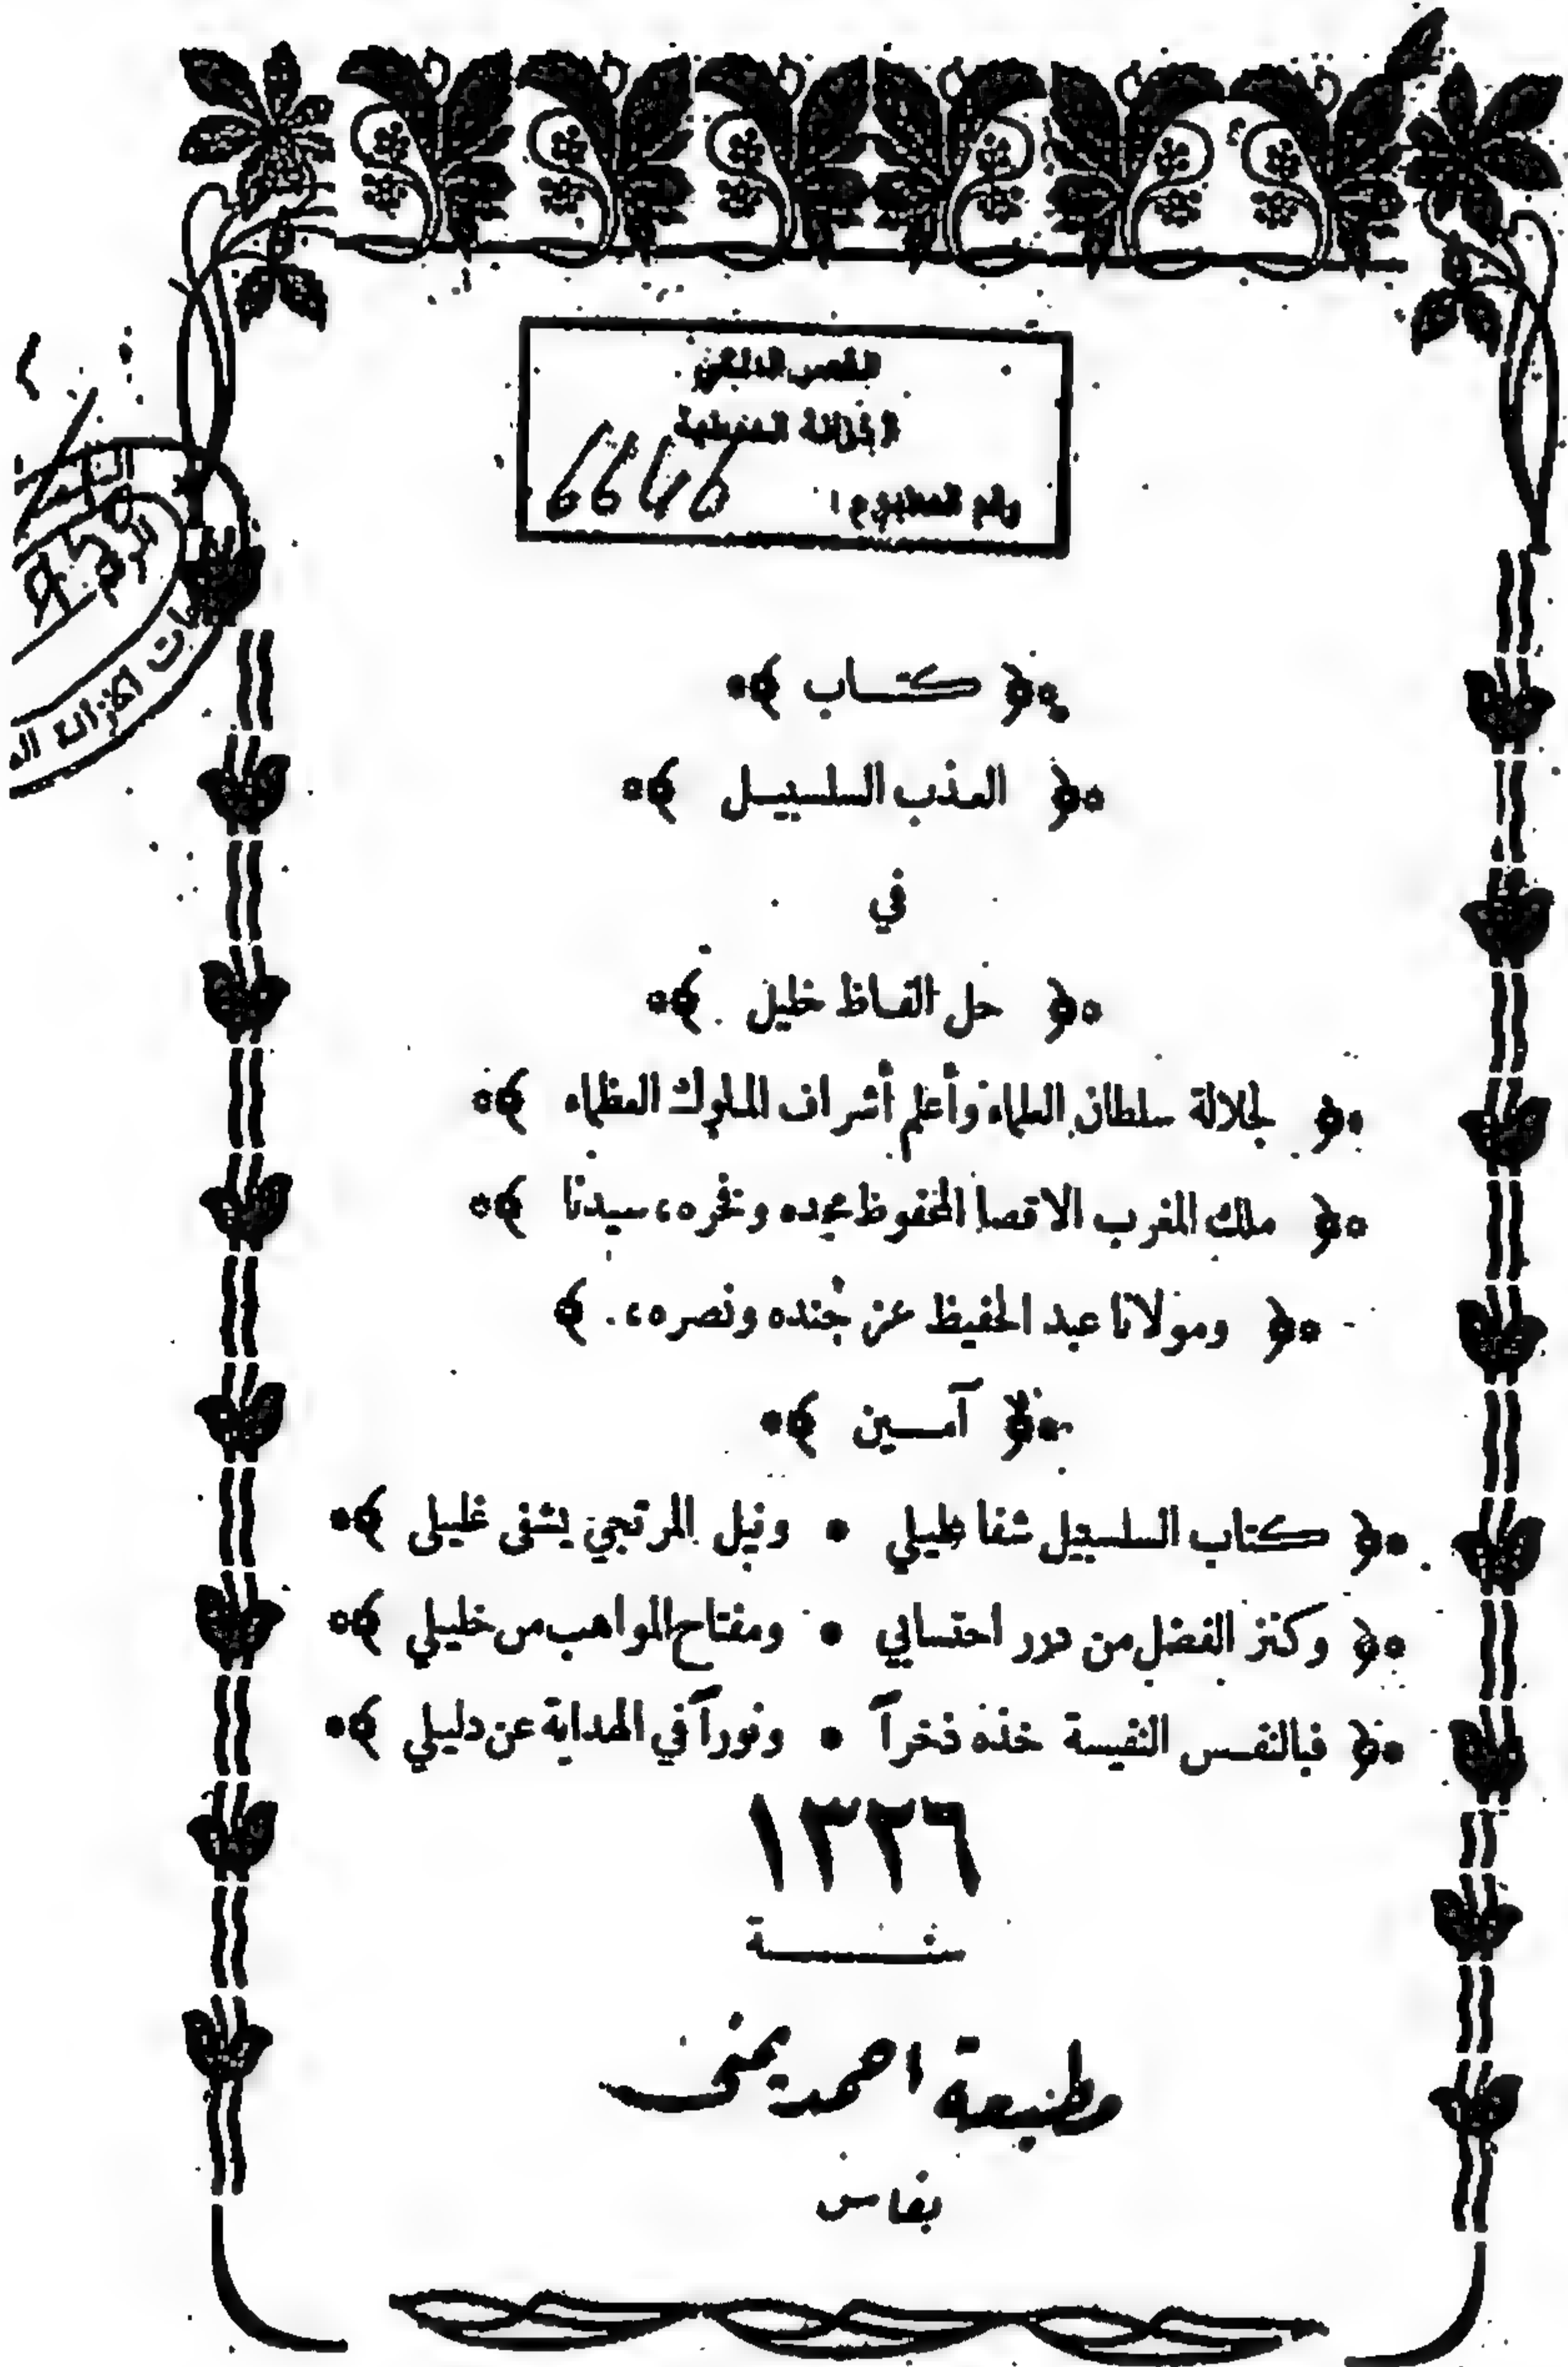 القصر الملكي
الخزانة الحسنية
رقم المطبوع : 6646
﴿ كتاب ﴾
﴿ العذب السلسبيل ﴾
في
﴿ حل الفاظ خليل ﴾
﴿ لجلالة سلطان العلماء وأعلم أشراف الملوك العظماء ﴾
﴿ ملك المغرب الاقصا المحفوظ مجده وفخره، سيدنا ﴾
﴿ ومولانا عبد الحفيظ عز جنده ونصره، . ﴾
﴿ آمين ﴾
﴿ كتاب السلسبيل شفا عليلي * ونيل المرتجي يشفى غليلى ﴾
﴿ وكنز الفضل من درر احتسابي * ومفتاح المواهب من خليلي ﴾
﴿ فبالنفس النفيسة خذه ذخراً * ونوراً في الهداية عن دليلي ﴾
١٣٢٦
سنة
مطبعة احمد يمنى
بفاس